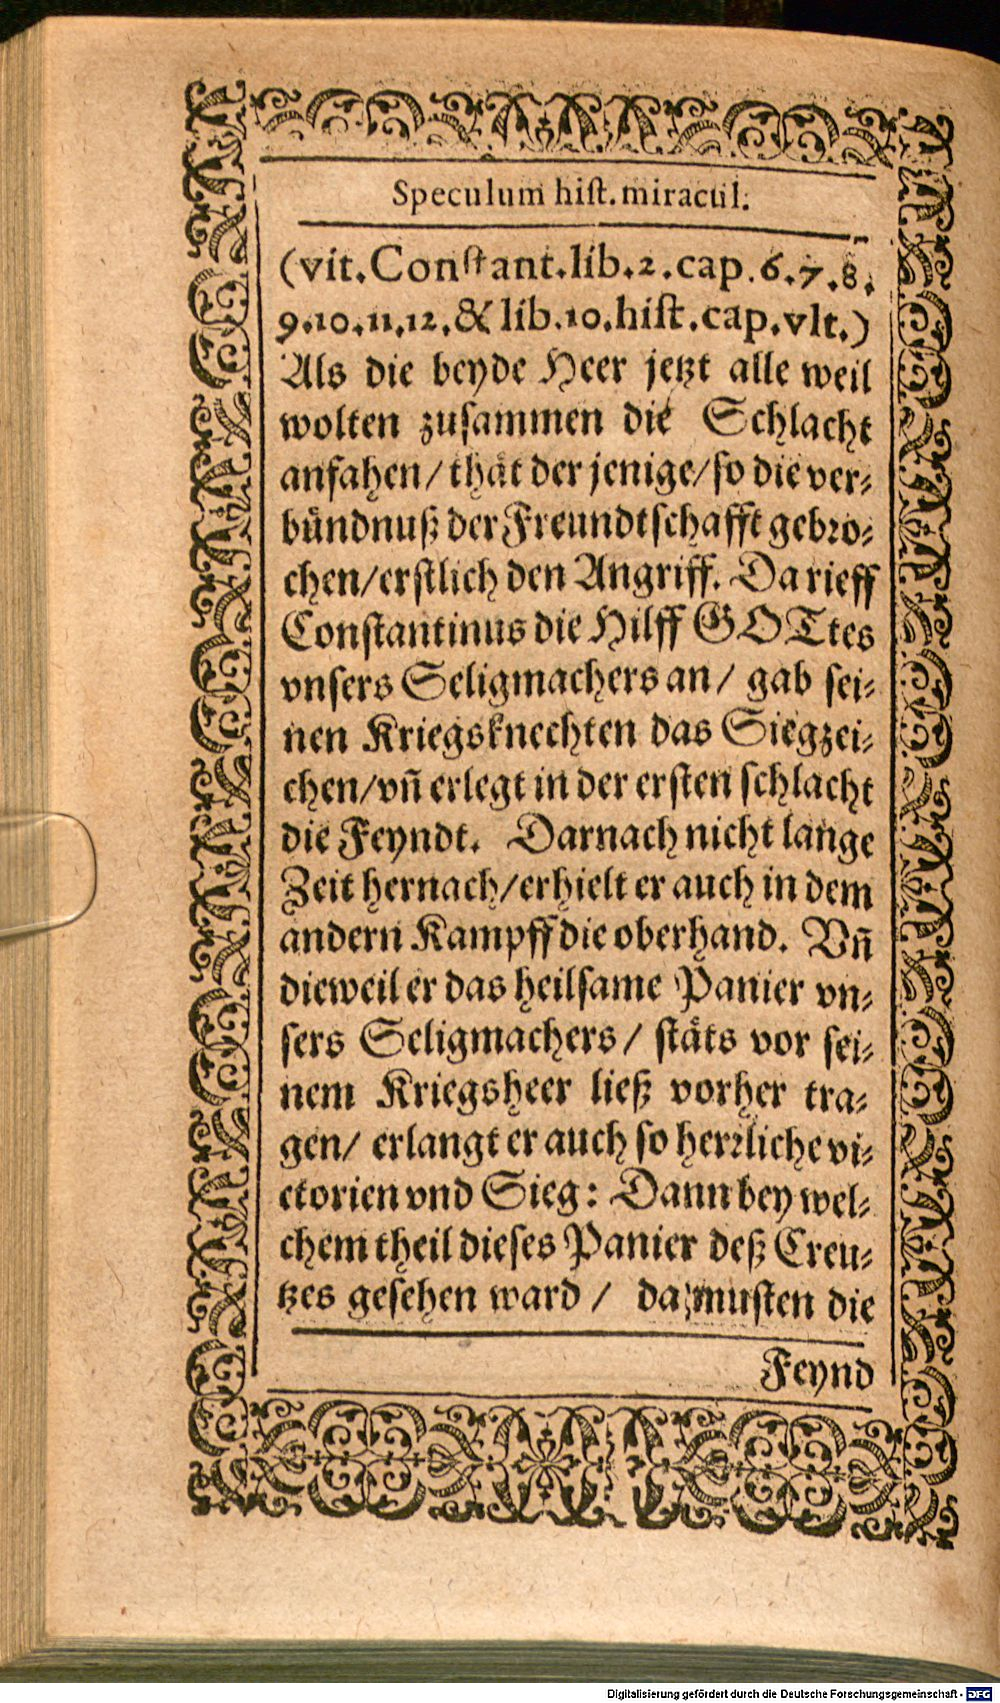 Speculum hist. miracul.
(vit. Constant. lib. 2. cap. 6. 7. 8.
9. 10. 11. 12. & lib. 10. hist. cap. vlt.)
Als die beyde Heer jetzt alle weil
wolten zusammen die Schlacht
anfahen/ thät der jenige/ so die ver-
bündnuß der Freundtschafft gebro-
chen/ erstlich den Angriff. Da rieff
Constantinus die Hilff GOTtes
vnsers Seligmachers an/ gab sei-
nen Kriegsknechten das Siegzei-
chen/ vñ erlegt in der ersten schlacht
die Feyndt. Darnach nicht lange
Zeit hernach/ erhielt er auch in dem
andern Kampff die oberhand. Vñ
dieweil er das heilsame Panier vn-
sers Seligmachers/ stäts vor sei-
nem Kriegsheer ließ vorher tra-
gen/ erlangt er auch so herrliche vi-
ctorien vnd Sieg: Dann bey wel-
chem theil dieses Panier deß Creu-
tzes gesehen ward/ da musten die
Feynd
Digitalisierung gefördert durch die Deutsche Forschungsgemeinschaft - DFG